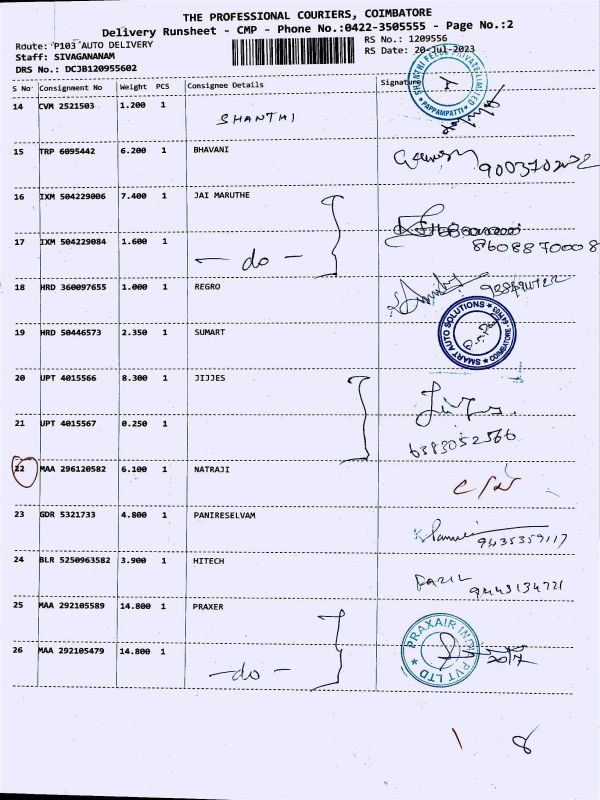 THE PROFESSIONAL COURIERS, COIMBATORE
Delivery Runsheet - CMP - Phone No.:0422-3505555 - Page No.:2
Route: P103 AUTO DELIVERY
RS No.: 1209556
Staff: SIVAGANANAM
RS Date: 20-Jul-2023
DRS No.: DCJB120955602
S No Consignment No Weight PCS Consignee Details Signature
14 CVM 2521503 1.200 1 SHANTHI
PAPPAMPATTI
15 TRP 6095442 6.200 1 BHAVANI
16 IXM 504229006 7.400 1 JAI MARUTHE
17 IXM 504229084 1.600 1 - do - 8608870008
18 HRD 360097655 1.000 1 REGRO
19 HRD 50446573 2.350 1 SUMART
SMART AUTO SOLUTIONS COIMBATORE
20 UPT 4015566 8.300 1 JIJJES
21 UPT 4015567 0.250 1 6383052566
22 MAA 296120582 6.100 1 NATRAJI
23 GDR 5321733 4.800 1 PANIRESELVAM 9435359117
24 BLR 5250963582 3.900 1 HITECH
9443134721
25 MAA 292105589 14.800 1 PRAXER
PRAXAIR INDIA PVT LTD
26 MAA 292105479 14.800 1 - do -
8